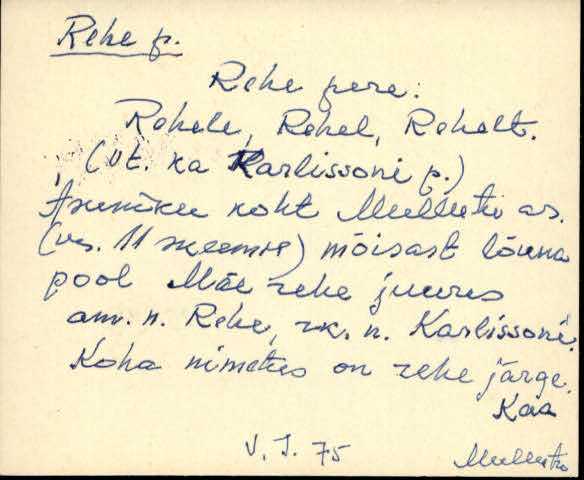 Rehe p.
Rehe pere:
Rehele, Rehel, Rehelt.
(vt. ka Karlissoni p.)
Asuniku koht Mullutu as.
(vs. 11 skeemis) mõisast lõuna
pool Mäe rehe juures
amr. n. Rehe, rk. n. Karlissoni.
Koha nimetus on rehe järge.
Kaa
V. J. 75
Mullutu